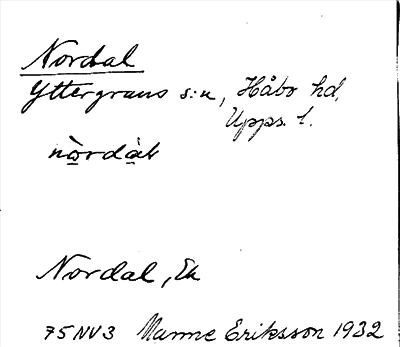 Nordal
Yttergrans s:n, Håbo hd,
Upps. l.
nòrdàl
Nordal, Ek
75NV3 Manne Eriksson 1932